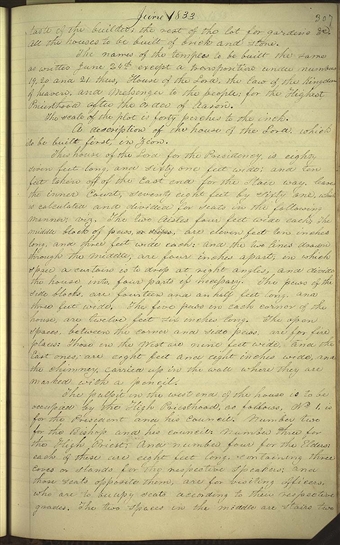 June 1833
307
taste of the builder, the rest of the lot for gardens &c
all the houses to be built of brick and stone.
The names of the temples to be built the same
as written June 24th except a transposition under numbers
19, 20 and 21 thus, House of the Lord, the law of the Kingdom
of heaven, and Messenger to the people; for the Highest
Priesthood after the Order of Aaron.
The scale of the plot is forty perches to the inch.
A description of the house of the Lord, which
to be built first, in Zion.
This house of the Lord for the Presidency, is eighty
seven feet long, and sixty one feet wide; and ten
feet taken off of the East end for the stair way, leave
the inner Court, seventy eight feet by sixty one, which
is calculated and divided for seats in the following
manner, viz. The two Aisles four feet wide each; the
middle block of pews, are eleven feet ten inches
long, and three feet wide each; and the two lines drawn
through the middle, are four inches apart; in which
space a curtain is to drop at right angles, and divide
the house into four parts if necessary. The pews of the
side blocks, are fourteen and a half feet long, and
three feet wide. The five pews in each corner of the
house, are twelve feet six inches long. The open
spaces, between the corner and side pews, are for fire
places; those in the West are nine feet wide, and the
East ones, are eight feet and eight inches wide, and
the chimney carried up in the wall where they are
marked with a pencil.
The pulpit in the west end of the house is to be
occupied by the High Priesthood, as follows, No 1, is
for the President and his Council; Number two
for the Bishop and his council; Number three for
the High Priests; And number four for the Elders
each of these are eight feet long, containing three
coves or stands for the respective speakers; and
those seats opposite them, are for visiting officers,
who are to occupy seats according to their respective
grades. The two spaces in the middle are stairs two